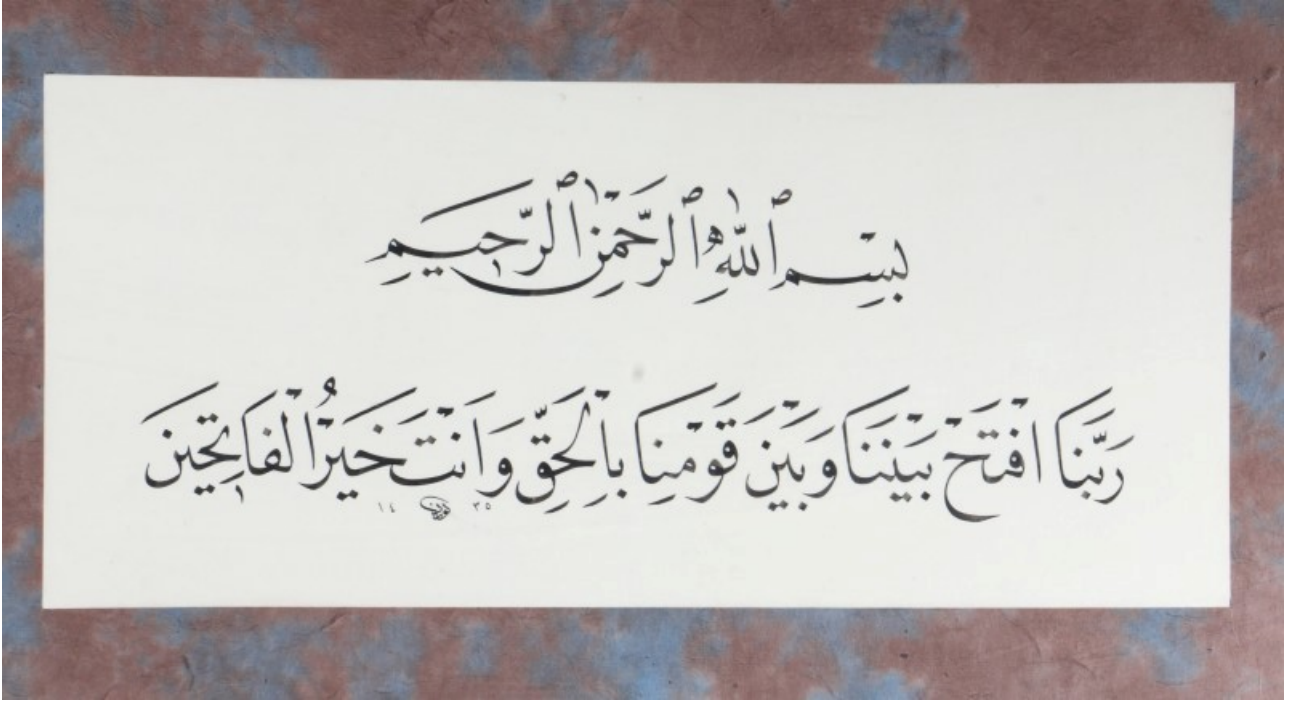 بِسْمِ ٱللّٰهِ ٱلرَّحْمٰنِ ٱلرَّحِيمِ
رَبَّنَا افْتَحْ بَيْنَنَا وَبَيْنَ قَوْمِنَا بِالْحَقِّ وَاَنْتَ خَيْرُ الْفَاتِحِينَ
١٤ ٣٥